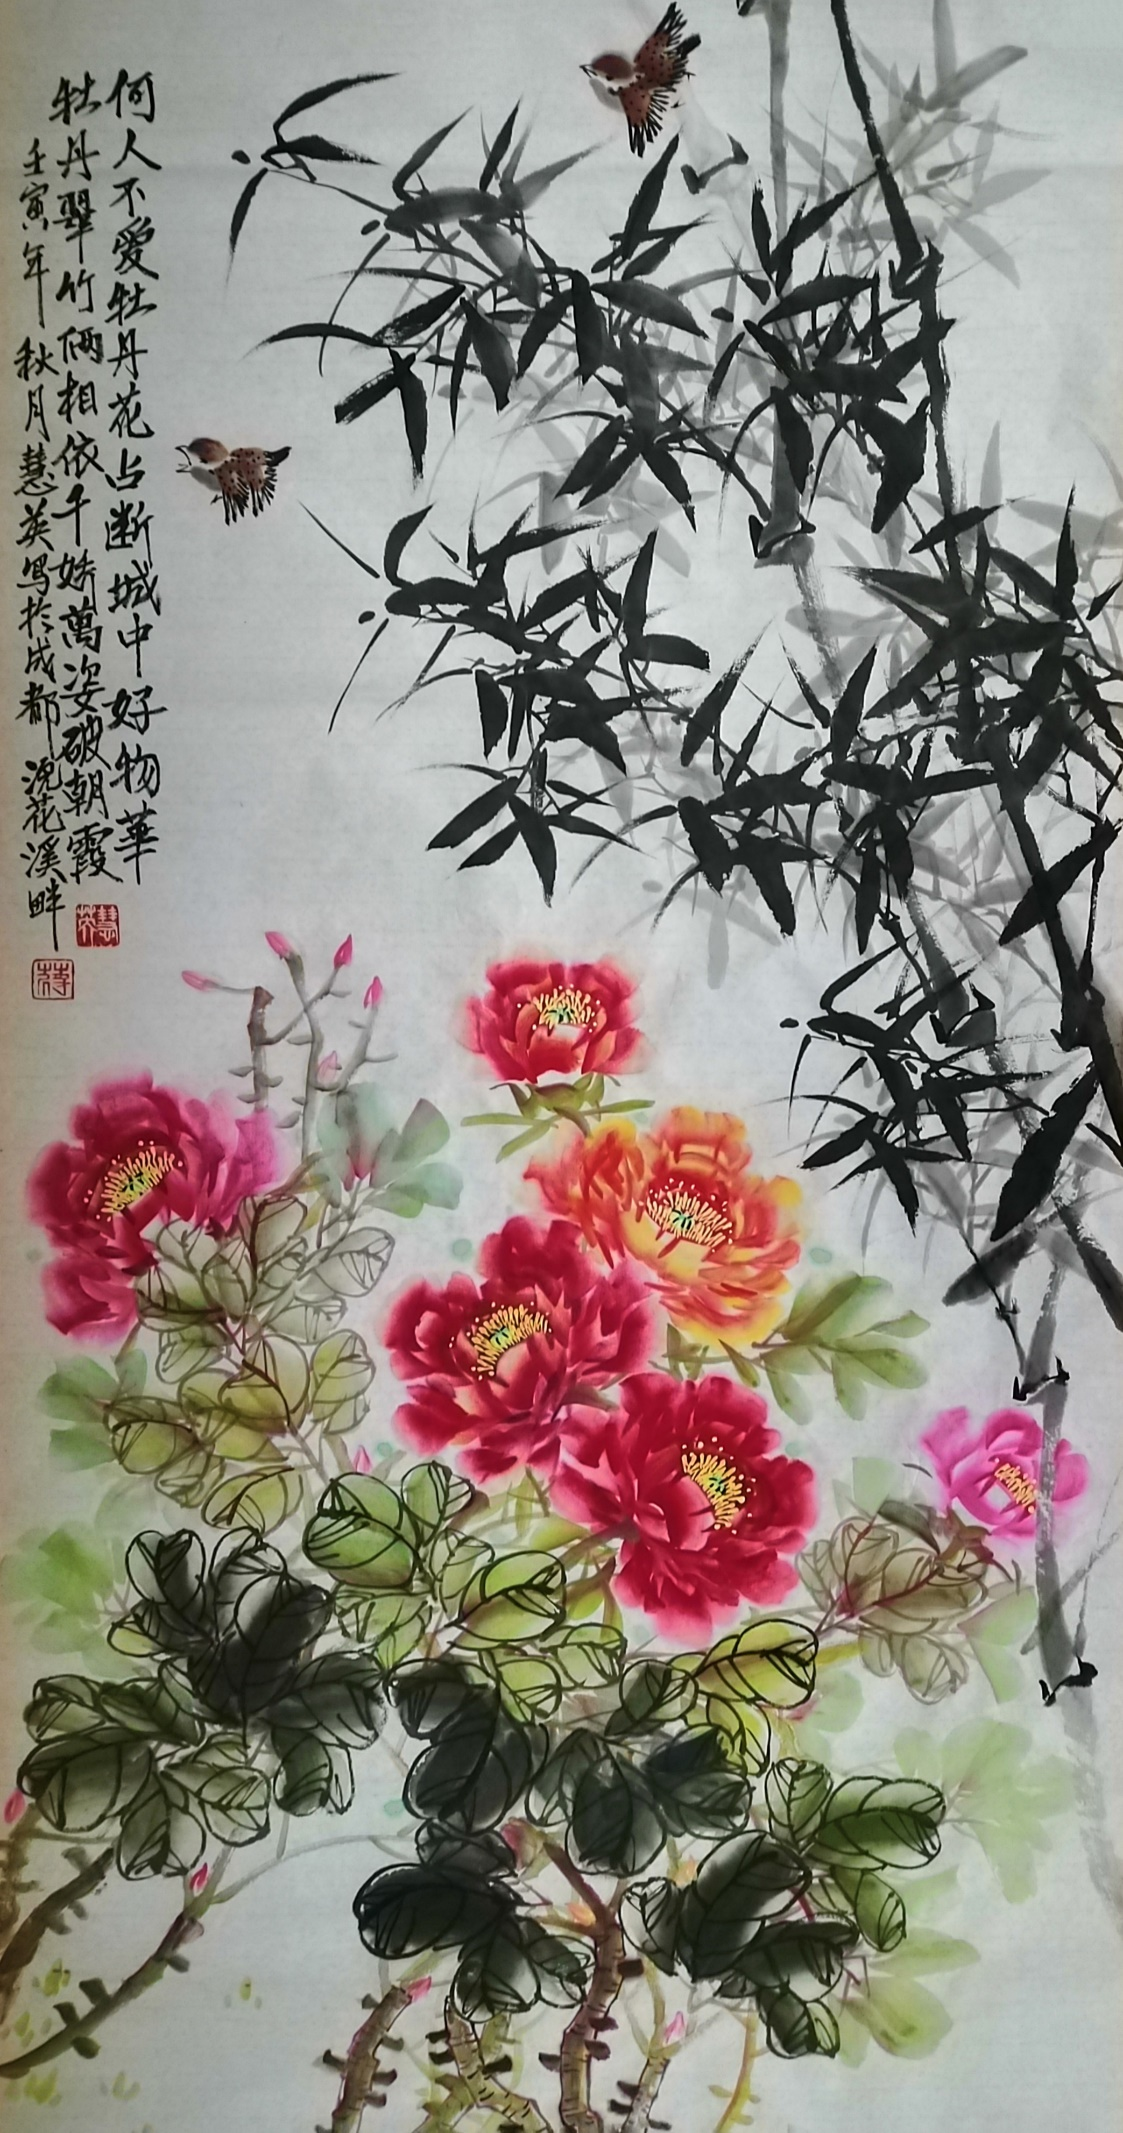 何人不爱牡丹花占断城中好物華
牡丹翠竹俩相依千娇萬姿破朝霞
壬寅年秋月慧英写於成都浣花溪畔
慧英
符